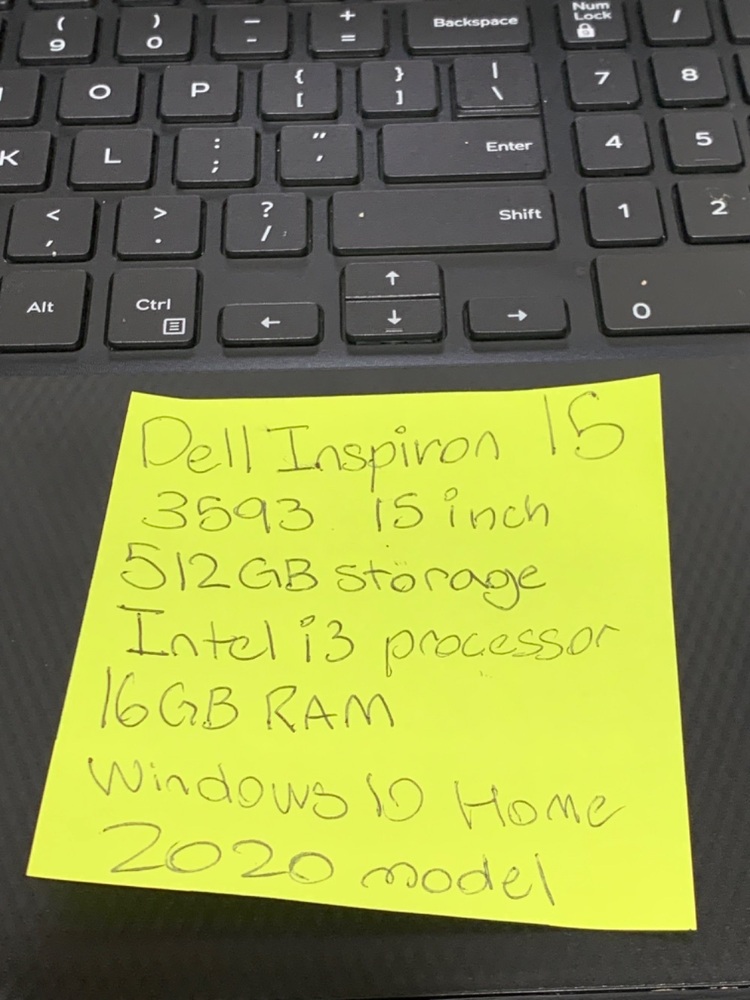 ( ) _ + Backspace Num Lock /
9 0 - =
O P { } | 7 8
[ ] \
K L : " Enter 4 5
; '
< > ? Shift 1 2
, . /
Alt Ctrl ↑ 0
← ↓ →
Dell Inspiron 15
3593 15 inch
512GB storage
Intel i3 processor
16GB RAM
Windows 10 Home
2020 model